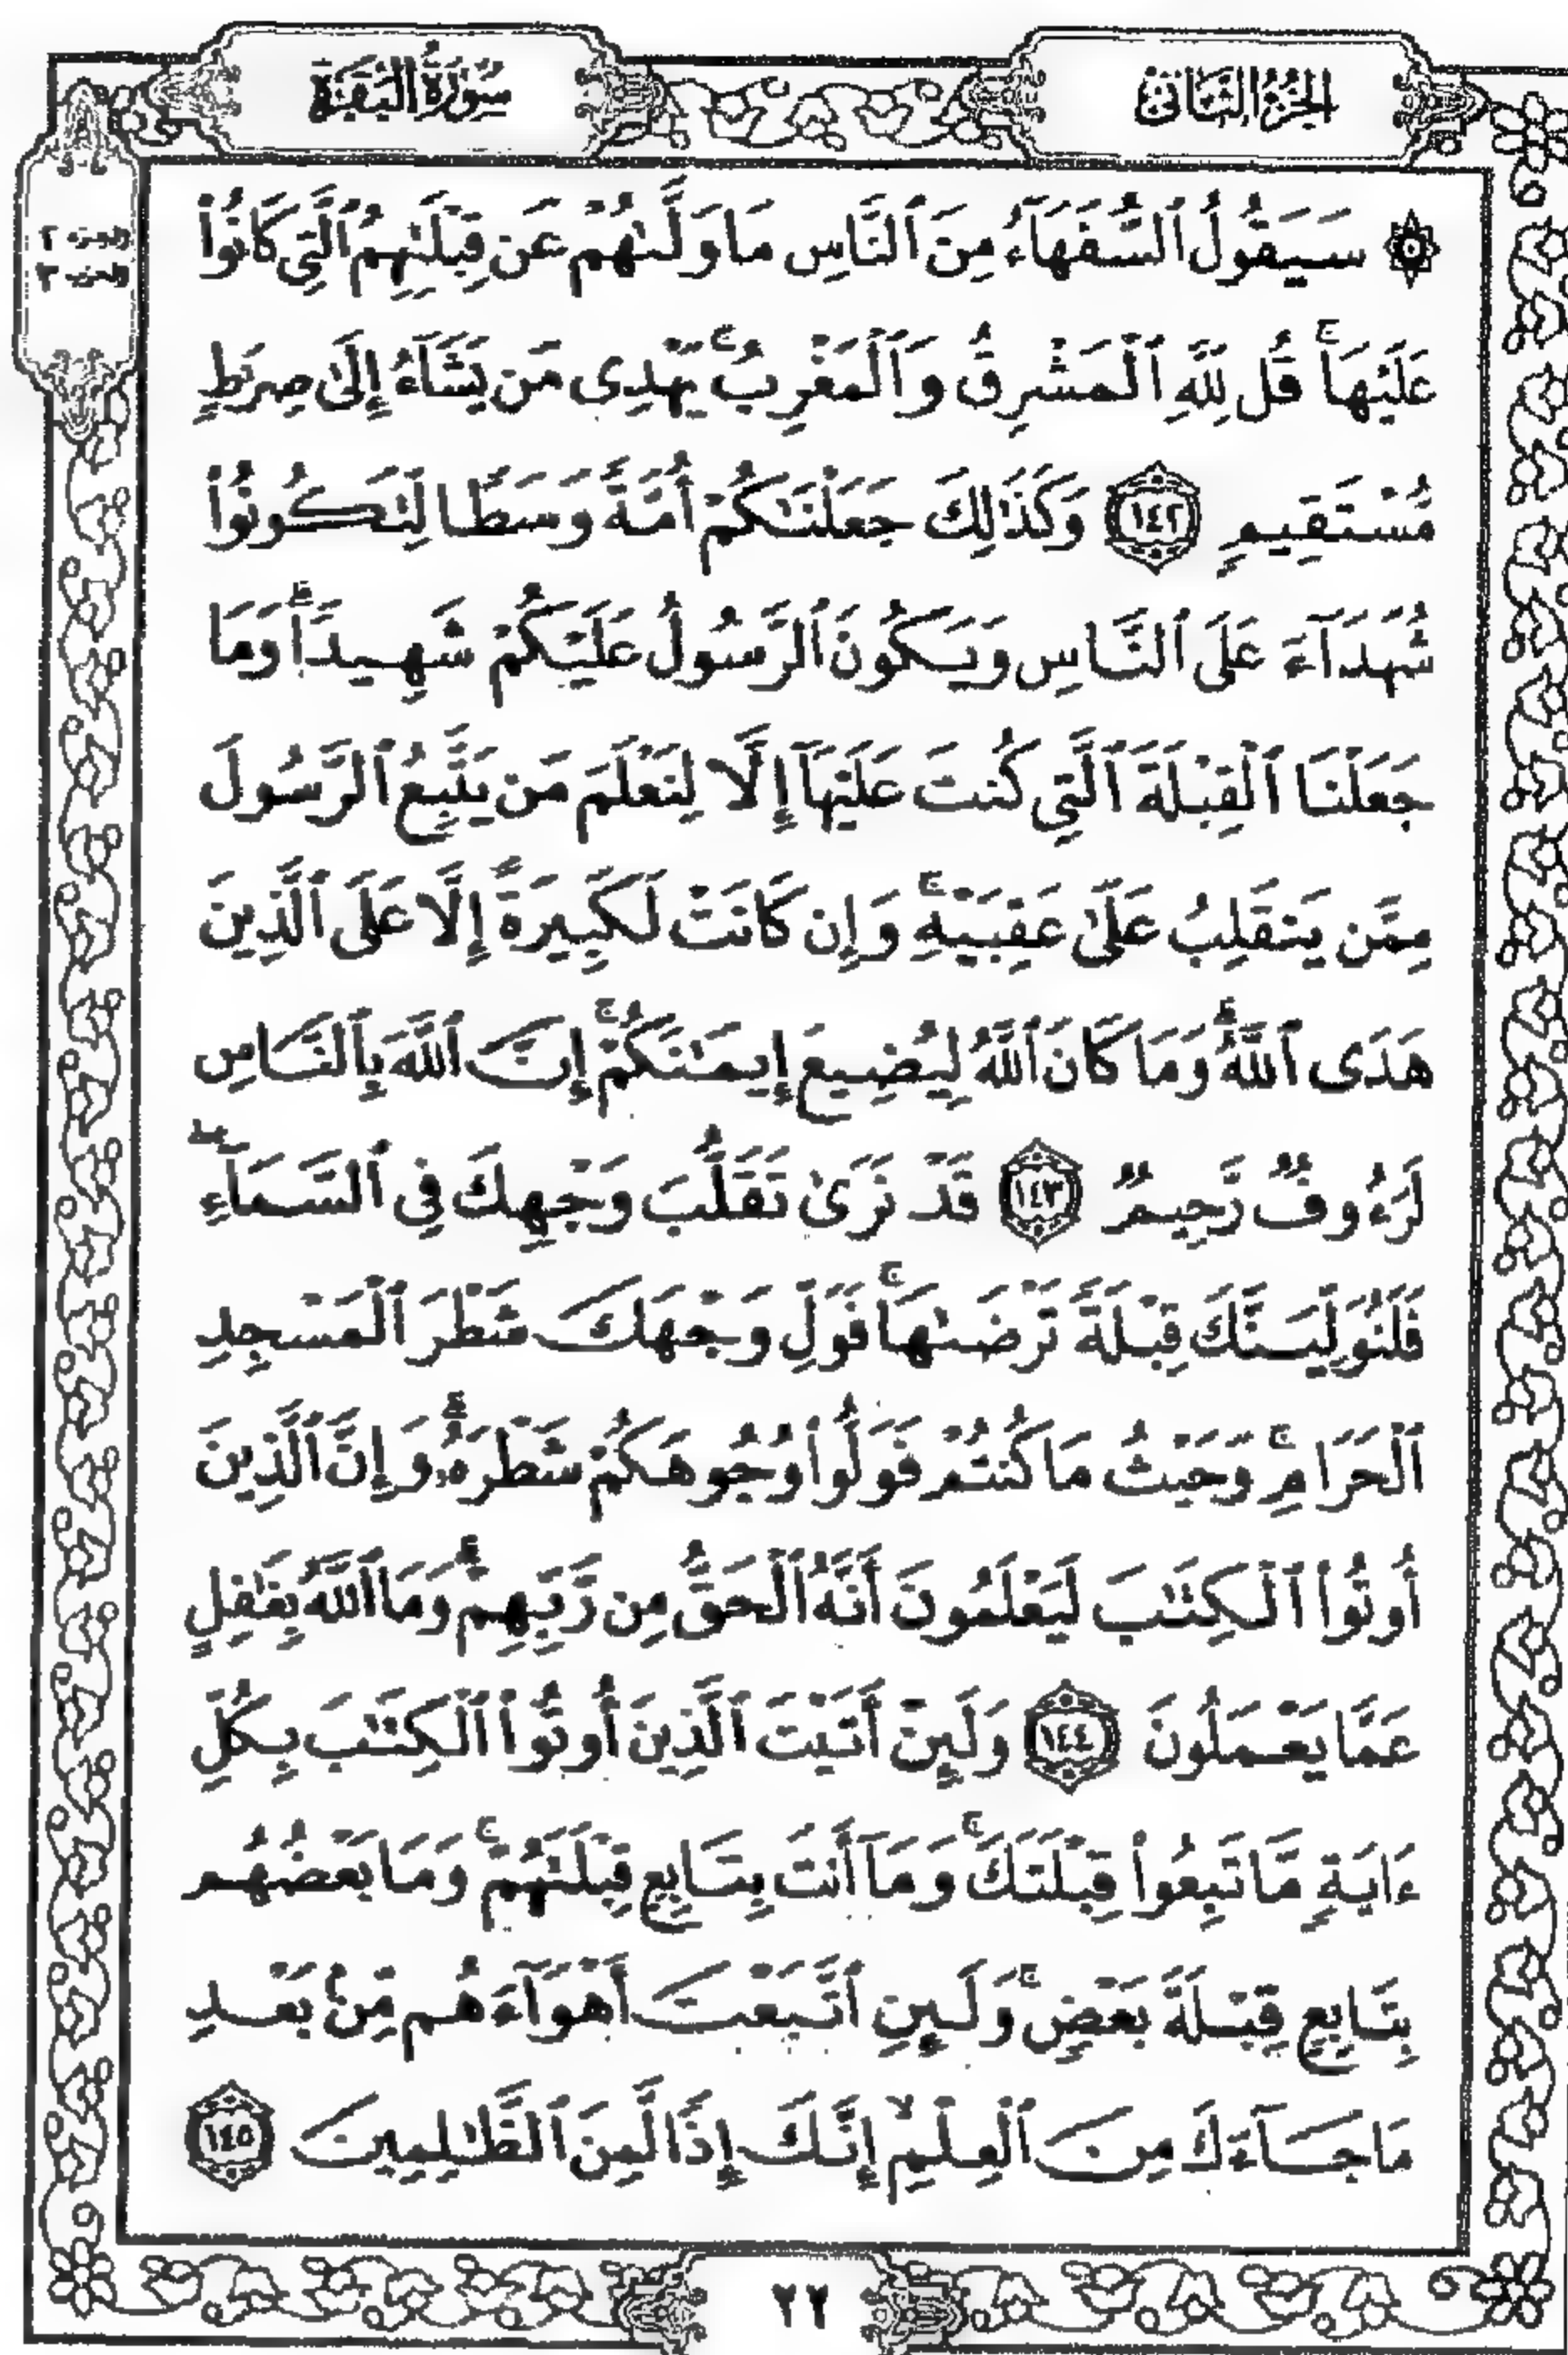 الجزء الثاني
سورة البقرة
الحزب ٢
الحزب ٣
۞ سَيَقُولُ ٱلسُّفَهَآءُ مِنَ ٱلنَّاسِ مَا وَلَّىٰهُمْ عَن قِبْلَتِهِمُ ٱلَّتِى كَانُوا۟
عَلَيْهَا ۚ قُل لِّلَّهِ ٱلْمَشْرِقُ وَٱلْمَغْرِبُ ۚ يَهْدِى مَن يَشَآءُ إِلَىٰ صِرَٰطٍ
مُّسْتَقِيمٍ ١٤٢ وَكَذَٰلِكَ جَعَلْنَٰكُمْ أُمَّةً وَسَطًا لِّتَكُونُوا۟
شُهَدَآءَ عَلَى ٱلنَّاسِ وَيَكُونَ ٱلرَّسُولُ عَلَيْكُمْ شَهِيدًا ۗ وَمَا
جَعَلْنَا ٱلْقِبْلَةَ ٱلَّتِى كُنتَ عَلَيْهَآ إِلَّا لِنَعْلَمَ مَن يَتَّبِعُ ٱلرَّسُولَ
مِمَّن يَنقَلِبُ عَلَىٰ عَقِبَيْهِ ۚ وَإِن كَانَتْ لَكَبِيرَةً إِلَّا عَلَى ٱلَّذِينَ
هَدَى ٱللَّهُ ۗ وَمَا كَانَ ٱللَّهُ لِيُضِيعَ إِيمَٰنَكُمْ ۚ إِنَّ ٱللَّهَ بِٱلنَّاسِ
لَرَءُوفٌ رَّحِيمٌ ١٤٣ قَدْ نَرَىٰ تَقَلُّبَ وَجْهِكَ فِى ٱلسَّمَآءِ ۖ
فَلَنُوَلِّيَنَّكَ قِبْلَةً تَرْضَىٰهَا ۚ فَوَلِّ وَجْهَكَ شَطْرَ ٱلْمَسْجِدِ
ٱلْحَرَامِ ۚ وَحَيْثُ مَا كُنتُمْ فَوَلُّوا۟ وُجُوهَكُمْ شَطْرَهُۥ ۗ وَإِنَّ ٱلَّذِينَ
أُوتُوا۟ ٱلْكِتَٰبَ لَيَعْلَمُونَ أَنَّهُ ٱلْحَقُّ مِن رَّبِّهِمْ ۗ وَمَا ٱللَّهُ بِغَٰفِلٍ
عَمَّا يَعْمَلُونَ ١٤٤ وَلَئِنْ أَتَيْتَ ٱلَّذِينَ أُوتُوا۟ ٱلْكِتَٰبَ بِكُلِّ
ءَايَةٍ مَّا تَبِعُوا۟ قِبْلَتَكَ ۚ وَمَآ أَنتَ بِتَابِعٍ قِبْلَتَهُمْ ۚ وَمَا بَعْضُهُم
بِتَابِعٍ قِبْلَةَ بَعْضٍ ۚ وَلَئِنِ ٱتَّبَعْتَ أَهْوَآءَهُم مِّنۢ بَعْدِ
مَا جَآءَكَ مِنَ ٱلْعِلْمِ ۙ إِنَّكَ إِذًا لَّمِنَ ٱلظَّٰلِمِينَ ١٤٥
٢٢